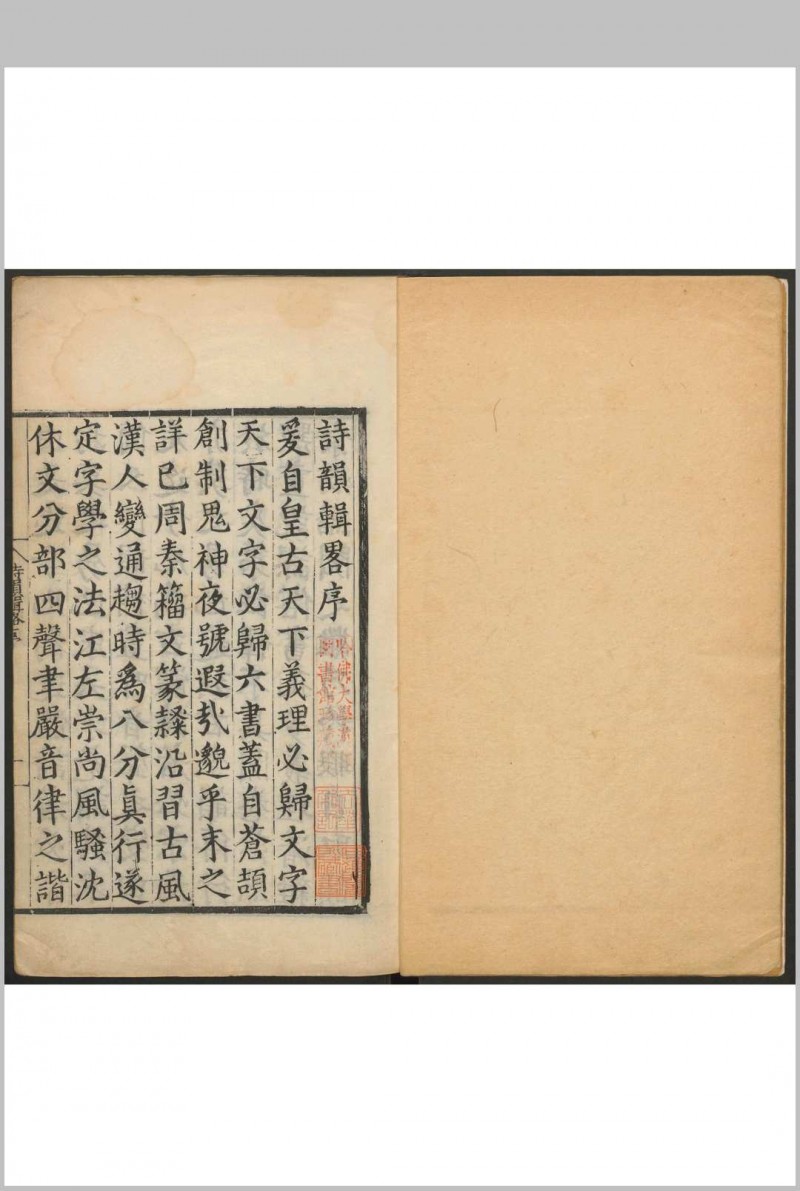 詩韻輯畧序
爰自皇古天下義理必歸文字
天下文字必歸六書蓋自蒼頡
創制鬼神夜號遐㢤邈乎末之
詳已周秦籀文篆隸沿習古風
漢人變通趨時爲八分眞行遂
定字學之法江左崇尚風騷沈
休文分部四聲聿嚴音律之諧